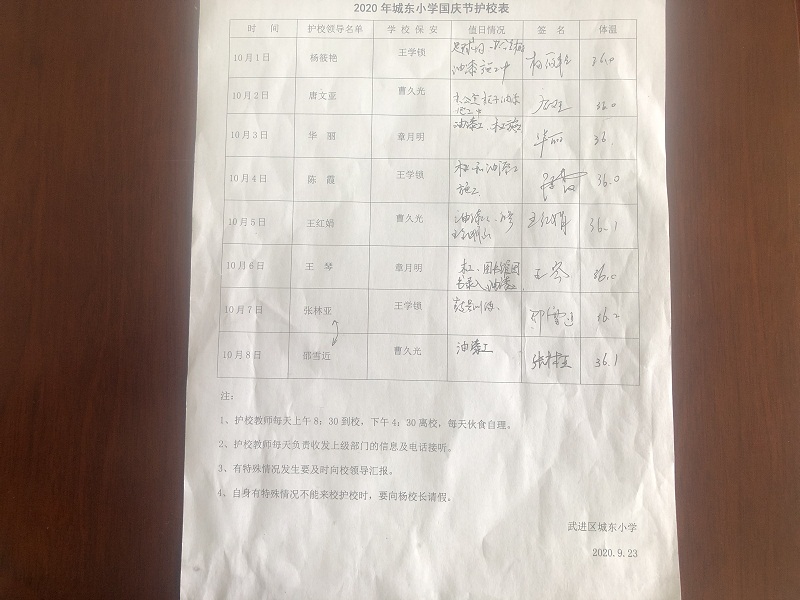 2020年城东小学国庆节护校表
时 间 护校领导名单 学校保安 值日情况 签 名 体温
10月1日 杨筱艳 王学锁 油漆施工中 36.0
10月2日 唐文亚 曹久光 36.0
10月3日 华 丽 章月明 油漆工、 华丽 36
10月4日 陈 霞 王学锁 油漆工 36.0
施工
10月5日 王红娟 曹久光 油漆工、 王红娟 36.1
10月6日 王 琴 章月明 木工、 油漆工 王琴 36.0
10月7日 张林亚 王学锁 邵雪近 36.2
10月8日 邵雪近 曹久光 油漆工 张林亚 36.1
注:
1、护校教师每天上午8:30到校,下午4:30离校,每天伙食自理。
2、护校教师每天负责收发上级部门的信息及电话接听。
3、有特殊情况发生要及时向校领导汇报。
4、自身有特殊情况不能来校护校时,要向杨校长请假。
武进区城东小学
2020.9.23